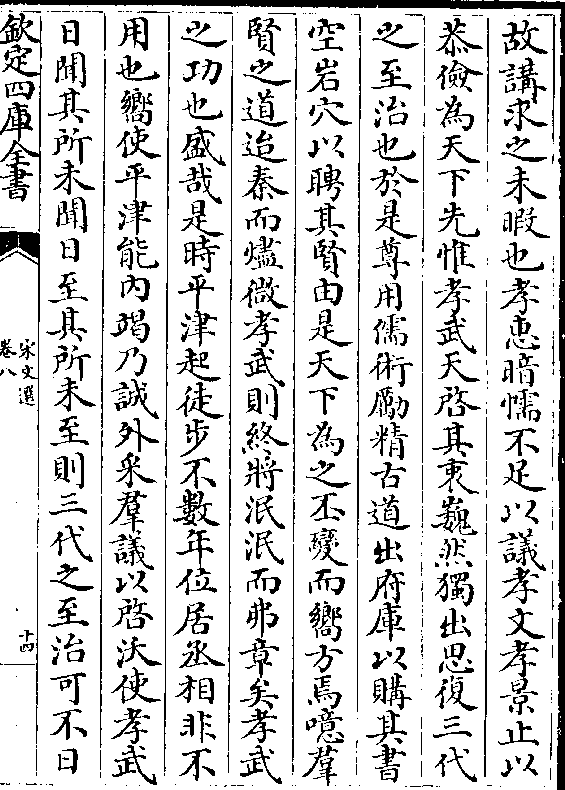 故講求之未暇也孝惠暗懦不足以議孝文孝景止以
恭儉為天下先惟孝武天啓其衷巍然獨出思復三代
之至治也於是尊用儒術勵精古道出府庫以購其書
空岩穴以聘其賢由是天下為之丕變而嚮方焉噫羣
賢之道迨秦而燼微孝武則終將泯泯而弗章矣孝武
之功也盛哉是時平津起徒步不數年位居丞相非不
用也嚮使平津能内竭乃誠外采羣議以啓沃使孝武
日聞其所未聞日至其所未至則三代之至治可不日
欽定四庫全書
宋文選
卷八
十四